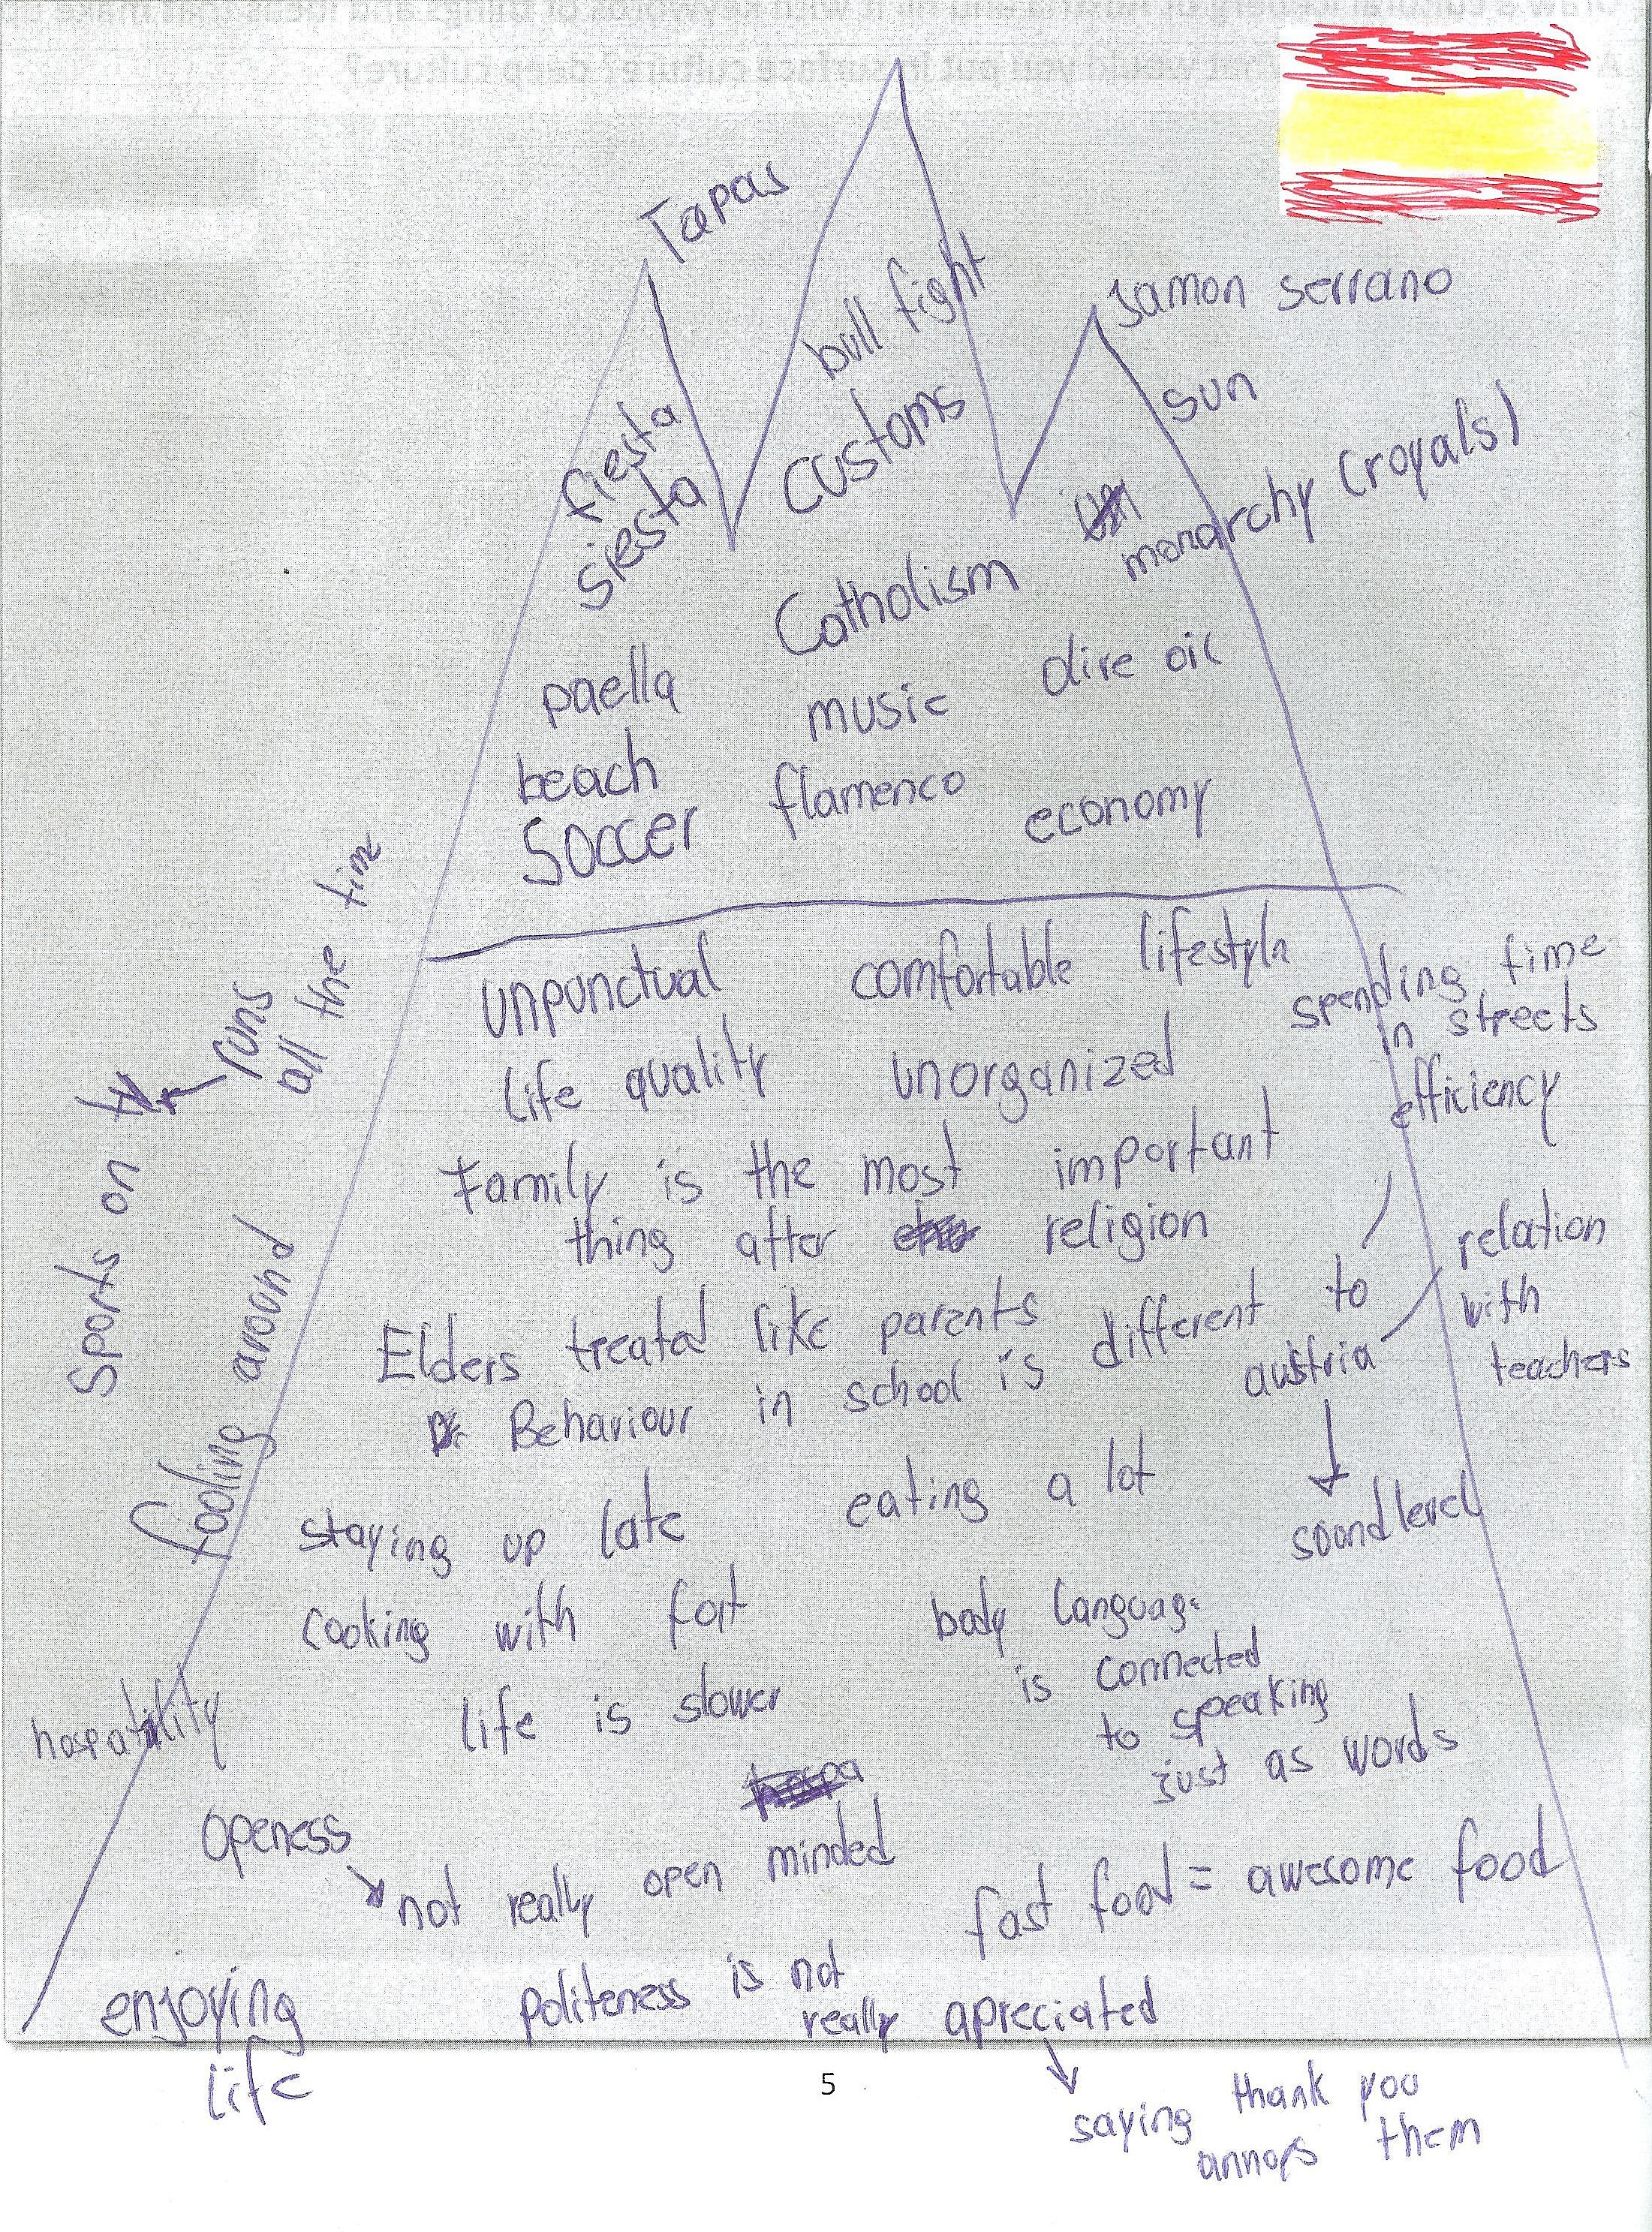 Tapas
bull fight
Jamon serrano
sun
fiesta
siesta
customs
monarchy (royals)
Catholism
paella
music
olive oil
beach
flamenco
economy
Soccer
unpunctual
comfortable lifestyle
spending time
in streets
life quality
unorganized
efficiency
Family is the most important
thing after religion
Elders treated like parents
Behaviour in school is different to
austria
relation
with
teachers
soundlevel
staying up late
eating a lot
cooking with fat
body language
is connected
to speaking
just as words
life is slower
Sports on tv
runs
all the time
fooling around
hospatility
openess
not really open minded
fast food = awesome food
enjoying
life
politeness is not
really apreciated
5
saying thank you
annoys them